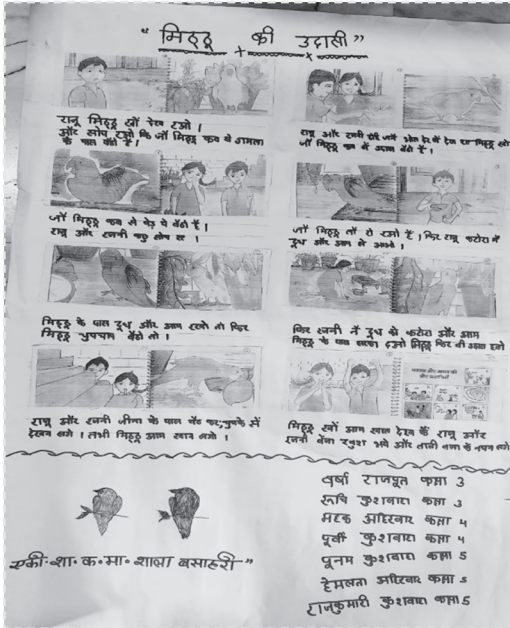 " मिठ्ठू की उदासी "
रामू मिठ्ठू खों देख रओ ।
और सोच रओ कि जौ मिठ्ठू कब से डामला
के पास बैठो है ।
रामू और रजनी दोई जनें भौत देर सें देख रए मिठ्ठू खों
जौ मिठ्ठू कब सें उदास बैठो है ।
जौ मिठ्ठू कब से पेड़ पे बैठो है ।
रामू और रजनी कछु सोच रए ।
जौ मिठ्ठू तो रो रओ है । फिर रामू कटोरा में
दूध और आम ले आओ ।
मिठ्ठू के पास दूध और आम रखो तो फिर
मिठ्ठू चुपचाप बैठो तो ।
फिर रजनी नें दूध को कटोरा और आम
मिठ्ठू के पास सरका दओ मिठ्ठू फिर भी उदास
रामू और रजनी जीना के पास बैठ कर चुपके सें
देखन लगे । तभी मिठ्ठू आम खान लगो ।
मिठ्ठू खों आम खात देख कें रामू और
रजनी खुश भये और ताली बजा के नचन लगे
एकी. शा. क. मा. शाला बसाहरी "
वर्षा राजपूत कक्षा 3
रूचि कुशवाहा कक्षा 3
अहिरवार कक्षा 4
पूर्वी कुशवाहा कक्षा 4
पूनम कुशवाहा कक्षा 5
हेमलता अहिरवार कक्षा 5
राजकुमारी कुशवाहा कक्षा 5